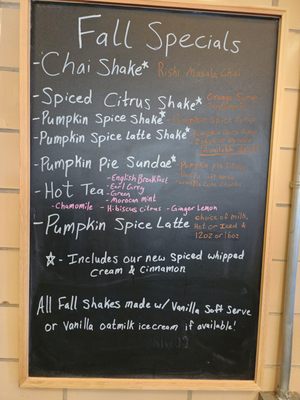 Fall Specials
-Chai Shake* Rishi Masala Chai
-Spiced Citrus Shake* Orange
-Pumpkin Spice Shake* Pumpkin Spice
-Pumpkin Spice Latte Shake*
-Pumpkin Pie Sundae* Pumpkin Pie
-Hot Tea -English Breakfast
-Earl Grey
-Green
-Moroccan Mint
-Chamomile -Hibiscus Citrus -Ginger Lemon
-Pumpkin Spice Latte choice of milk,
Hot or Iced &
12oz or 16oz
☆ - Includes our new spiced whipped
cream & cinnamon
All Fall Shakes made w/ Vanilla Soft Serve
or Vanilla oatmilk ice cream if available!